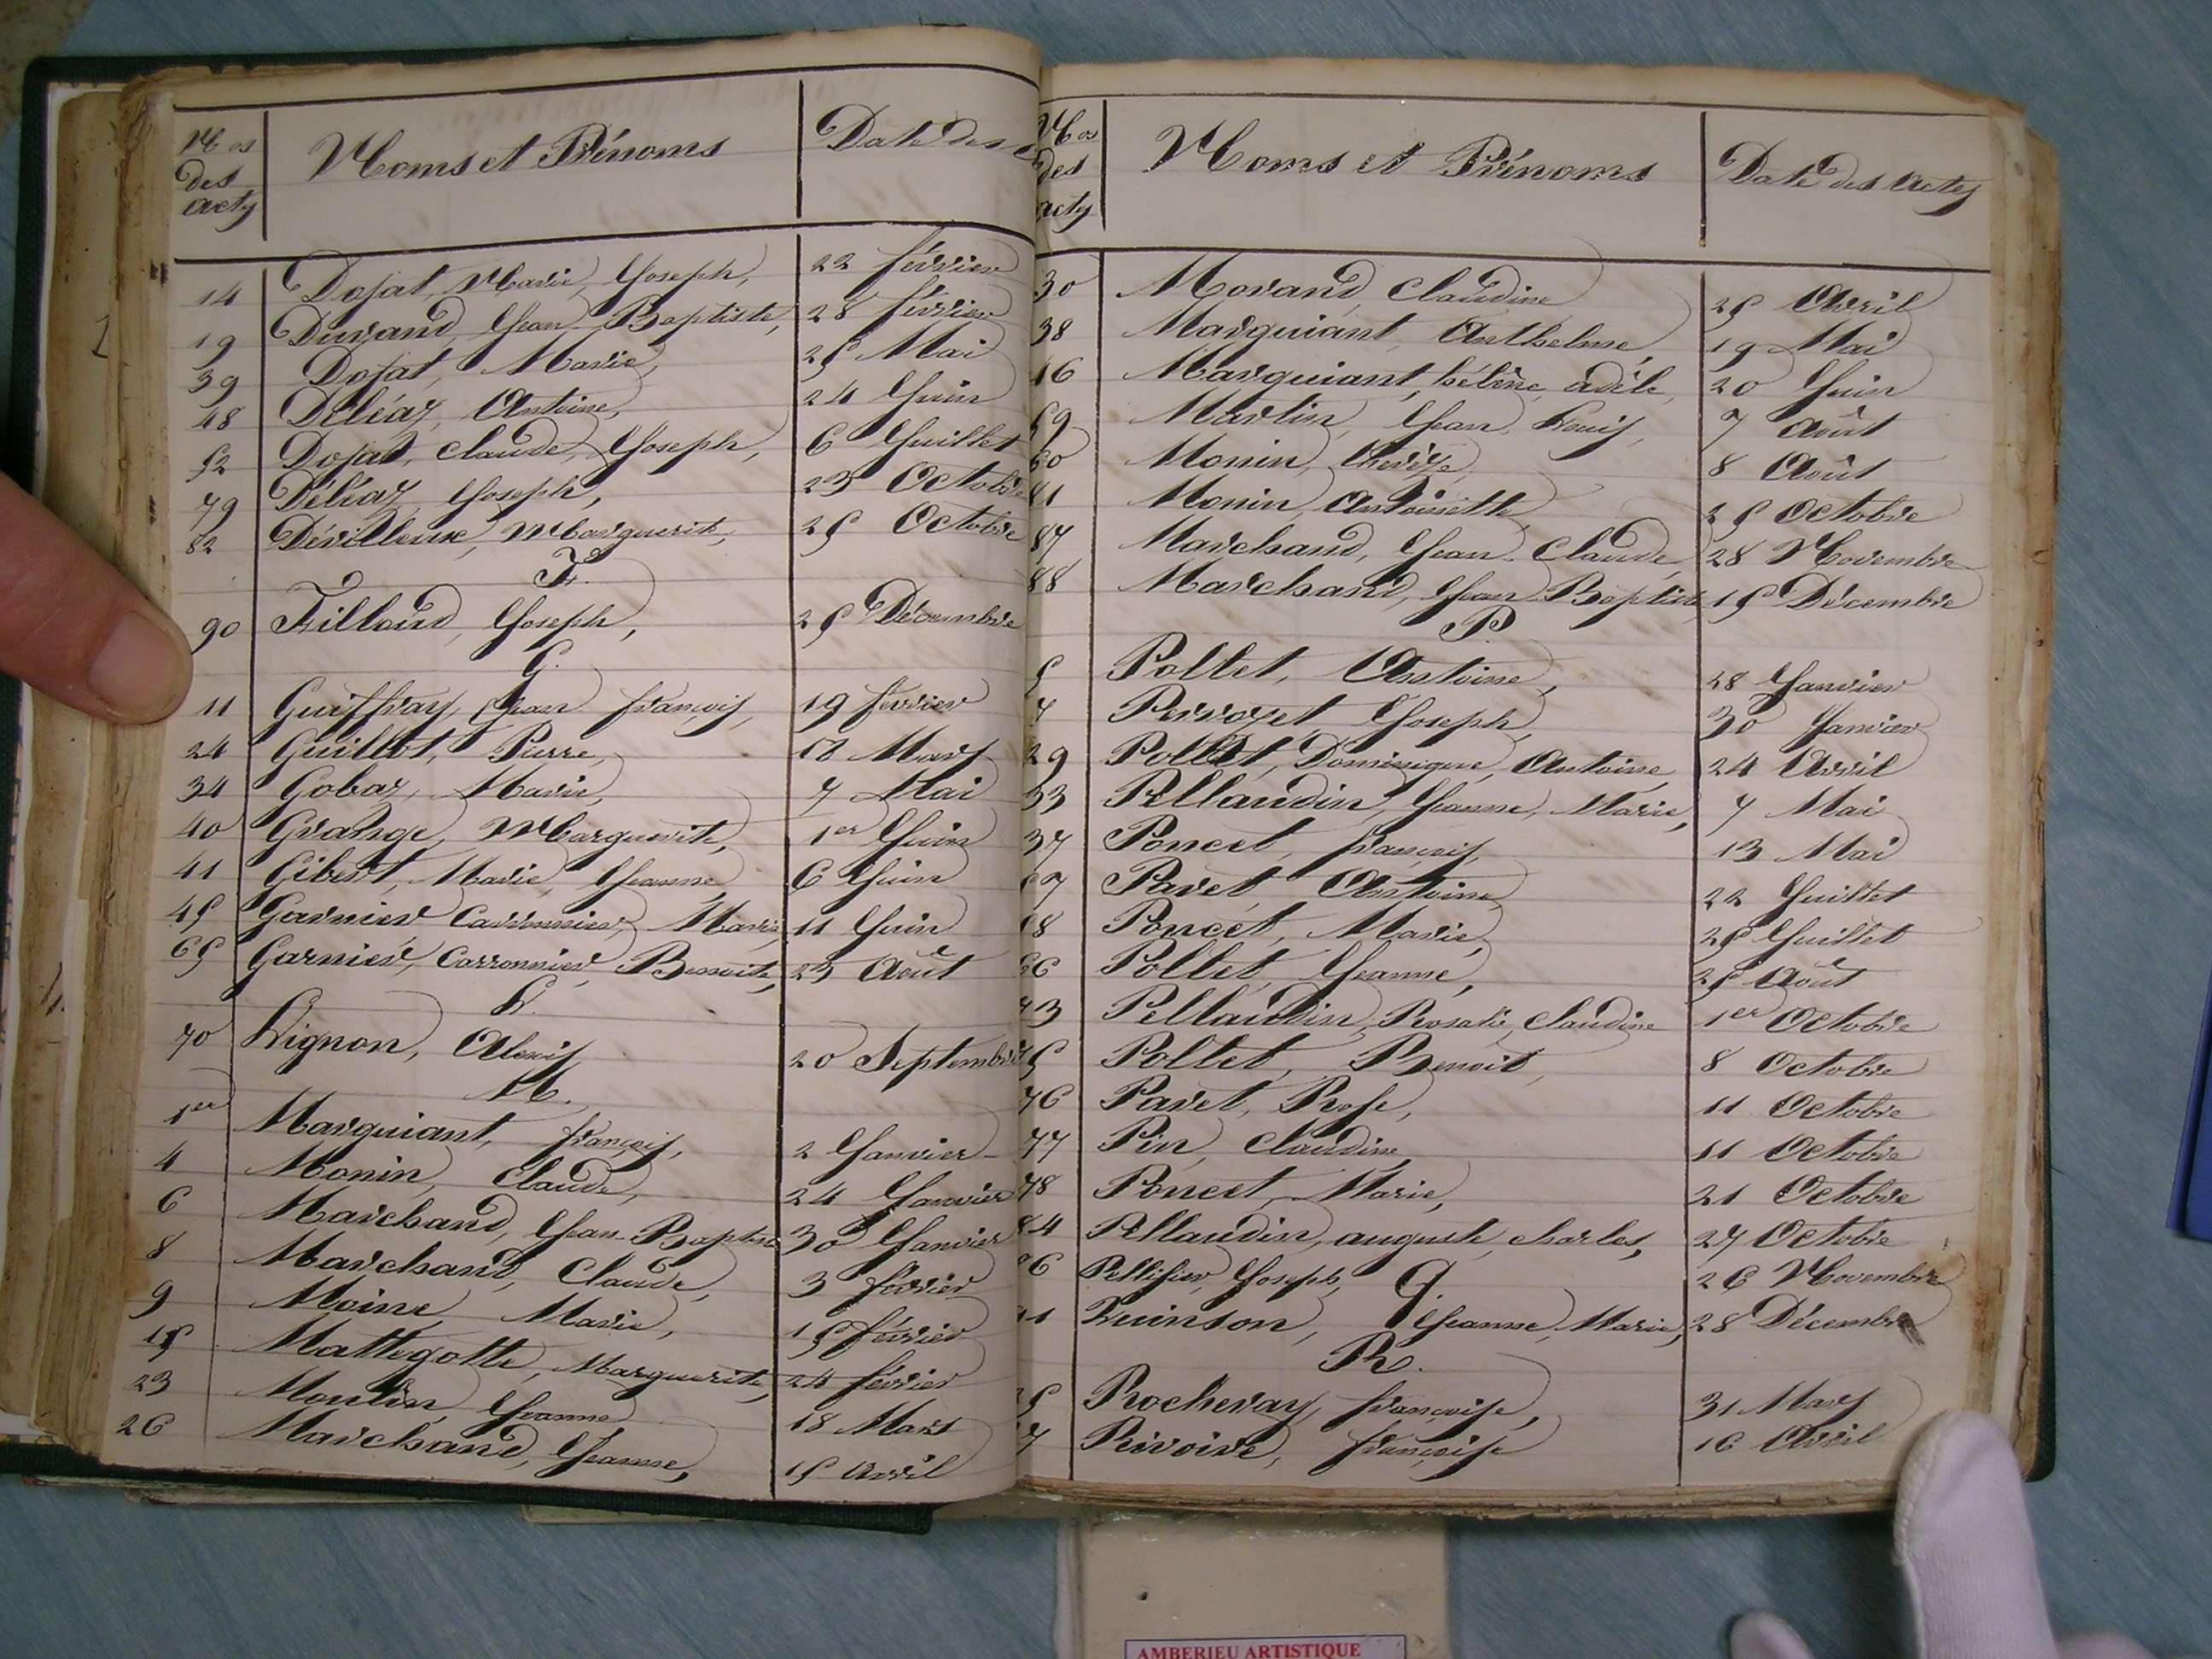 Nos des actes Noms et Prénoms Date des
14 Dojat, Marie, Joseph, 22 février
19 Durand, Jean Baptiste, 28 février
39 Dojat, Marie, 25 Mai
48 Déléaz, Antoine, 24 Juin
52 Dojat, Claude, Joseph, 6 Juillet
79 Déléaz, Joseph, 23 Octobre
82 Dévilleux, Marguerite, 25 Octobre
F.
90 Filloud, Joseph, 25 Décembre
G.
11 Guiffray, Jean françois, 19 février
24 Guillot, Pierre, 18 Mars
34 Gobaz, Marie, 7 Mai
40 Grange, Marguerite, 1er Juin
41 Gibert, Marie, Jeanne, 6 Juin
45 Garnier Carronnier, Marie, 11 Juin
65 Garnier, Carronnier, Benoite, 23 Août
L.
70 Lignon, Alexis 20 Septembre
M.
1er Marguiant, françois, 2 Janvier
4 Monin, Claude, 24 Janvier
6 Marchand, Jean-Baptiste 30 Janvier
8 Marchand, Claude, 3 février
9 Moine, Marie, 15 février
15 Mattegotte, Marguerite, 24 février
23 Moulin, Jeanne 18 Mars
26 Marchand, Jeanne, 15 avril
Nos des actes Noms et Prénoms Date des actes
30 Morand, Claudine 25 Avril
38 Marguiant, Anthelme, 19 Mai
46 Marguiant, hélène, adèle, 20 Juin
59 Martin, Jean Louis, 7 Août
60 Monin, thérèze, 8 Août
81 Monin, Antoinette, 25 Octobre
87 Marchand, Jean-Claude, 28 Novembre
88 Marchand, Jean-Baptiste 15 Décembre
P.
5 Pollet, Antoine, 28 Janvier
7 Perrozet, Joseph, 30 Janvier
29 Pollet, Dominique, Antoine, 24 Avril
33 Pellaudin, Jeanne, Marie, 7 Mai
37 Poncet, françois, 13 Mai
Pavet, Antoine, 22 Juillet
Poncet, Marie, 25 Juillet
66 Pollet, Jeanne, 25 Août
73 Pellaudin, Rosalie, Claudine 1er Octobre
75 Pollet, Benoit, 8 Octobre
76 Pavet, Rose, 11 Octobre
77 Pin, Claudine, 11 Octobre
78 Poncet, Marie, 21 Octobre
84 Pellaudin, auguste, charles, 27 Octobre
86 Pellisier, Joseph, 26 Novembre
Q.
91 Quinson, Jeanne, Marie, 28 Décembre
R.
25 Rocheray, françoise, 31 Mars
27 Rivoire, françoise 16 Avril
AMBERIEU ARTISTIQUE